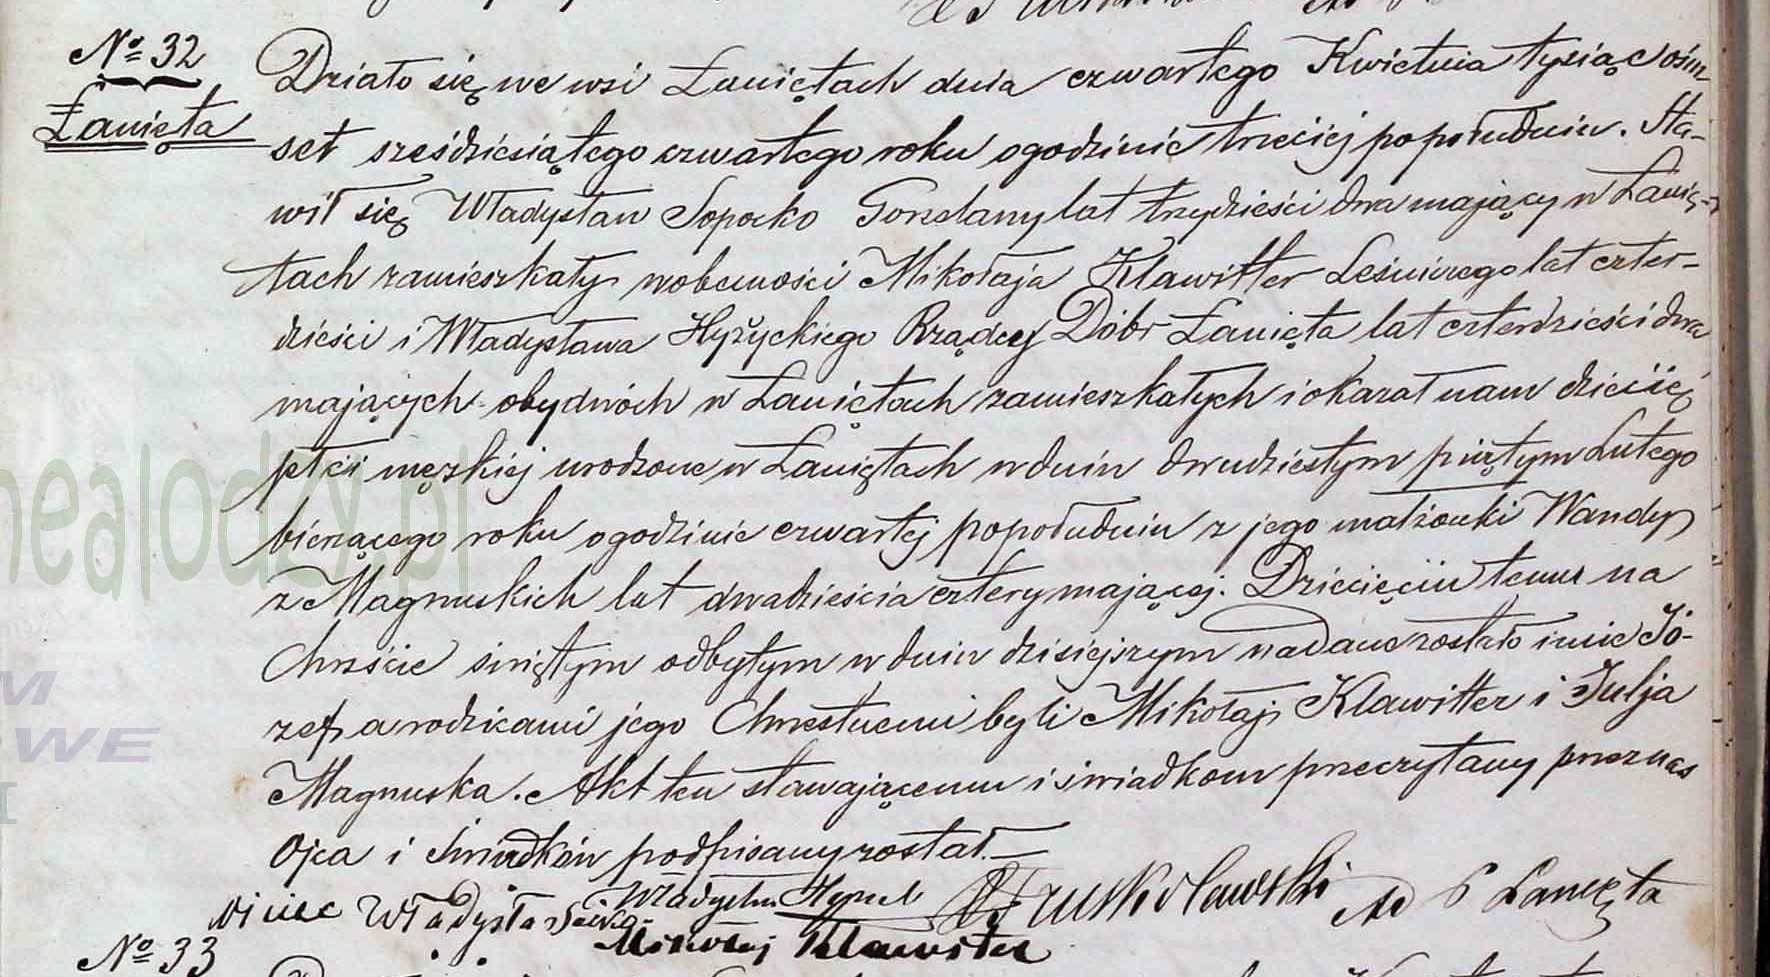 № 32
Łanięta
Działo się we wsi Łaniętach dnia czwartego Kwietnia tysiąc ośm
set sześdziesiątego czwartego roku ogodzinie trzeciej popołudniu. Sta-
wił się Władysław Sopocko Gorzelany lat trzydzieści dwa mający w Łanię-
tach zamieszkały wobecności Mikołaja Klawitter Leśniczego lat czter-
dzieści i Władysława Hyżyckiego Rządcy Dóbr Łanięta lat czterdzieści dwa
mających obydwóch w Łaniętach zamieszkałych i okazał nam dziecię
płci męzkiej urodzone w Łaniętach w dniu dwudziestym piątym Lutego
bieżącego roku ogodzinie czwartej popołudniu z jego małżonki Wandy
z Magnuskich lat dwadzieścia cztery mającej. Dziecięciu temu na
Chrzście świętym odbytym w dniu dzisiejszym nadane zostało imie Jó-
zef, a rodzicami jego Chrzestnemi byli Mikołaj Klawitter i Julja
Magnuska. Akt ten stawającemu i świadkom przeczytany przez nas
Ojca i świadków podpisany został.—
Władysław
Mikołaj Klawitter
№ 33
nealodzy.pl
M
WE
I